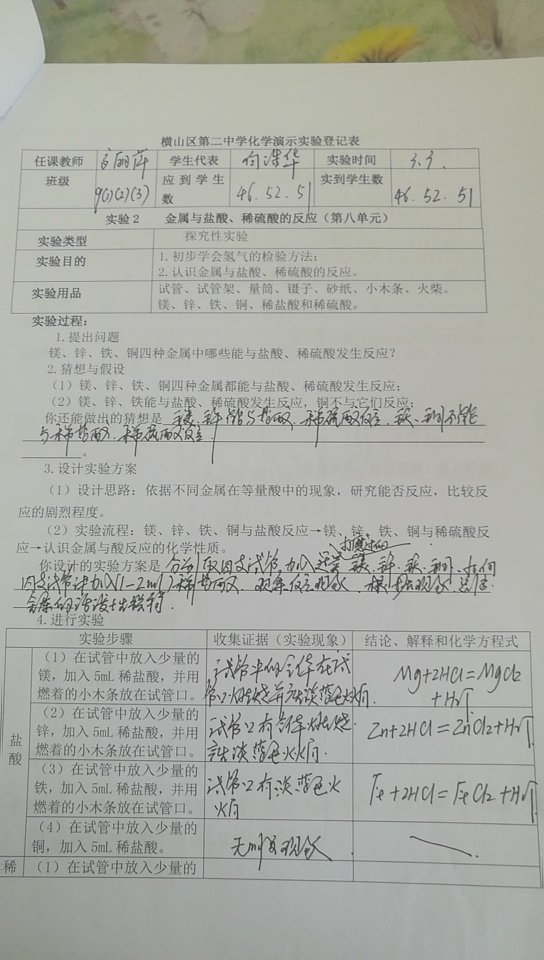 横山区第二中学化学演示实验登记表
任课教师 学生代表 实验时间 3.3.
班级 9(1)(2)(3) 应到学生数 46.52.51 实到学生数 46.52.51
实验2 金属与盐酸、稀硫酸的反应（第八单元）
实验类型 探究性实验
实验目的 1.初步学会氢气的检验方法；
2.认识金属与盐酸、稀硫酸的反应。
实验用品 试管、试管架、量筒、镊子、砂纸、小木条、火柴。
镁、锌、铁、铜、稀盐酸和稀硫酸。
实验过程：
1.提出问题
镁、锌、铁、铜四种金属中哪些能与盐酸、稀硫酸发生反应？
2.猜想与假设
（1）镁、锌、铁、铜四种金属都能与盐酸、稀硫酸发生反应；
（2）镁、锌、铁能与盐酸、稀硫酸发生反应，铜不与它们反应；
你还能做出的猜想是 镁、锌能与盐酸、稀硫酸反应，铁、铜不能
与稀盐酸、稀硫酸反应
。
3.设计实验方案
（1）设计思路：依据不同金属在等量酸中的现象，研究能否反应，比较反
应的剧烈程度。
（2）实验流程：镁、锌、铁、铜与盐酸反应→镁、锌、铁、铜与稀硫酸反
应→认识金属与酸反应的化学性质。
打磨过的
你设计的实验方案是 分别取四支试管，加入 镁、锌、铁、铜，
试管中加入(1-2ml)稀盐酸，观察反应现象，
4.进行实验
实验步骤 收集证据（实验现象） 结论、解释和化学方程式
盐酸
（1）在试管中放入少量的
镁，加入5mL稀盐酸，并用
燃着的小木条放在试管口。
试管中的气体在试
管口燃烧并产生淡蓝色火焰
Mg+2HCl=MgCl2
+H2↑
（2）在试管中放入少量的
锌，加入5mL稀盐酸，并用
燃着的小木条放在试管口。
试管口有气体燃烧
产生淡蓝色火焰
Zn+2HCl=ZnCl2+H2↑
（3）在试管中放入少量的
铁，加入5mL稀盐酸，并用
燃着的小木条放在试管口。
试管口有淡蓝色火
焰
Fe+2HCl=FeCl2+H2↑
（4）在试管中放入少量的
铜，加入5mL稀盐酸。
无明显现象
稀 （1）在试管中放入少量的